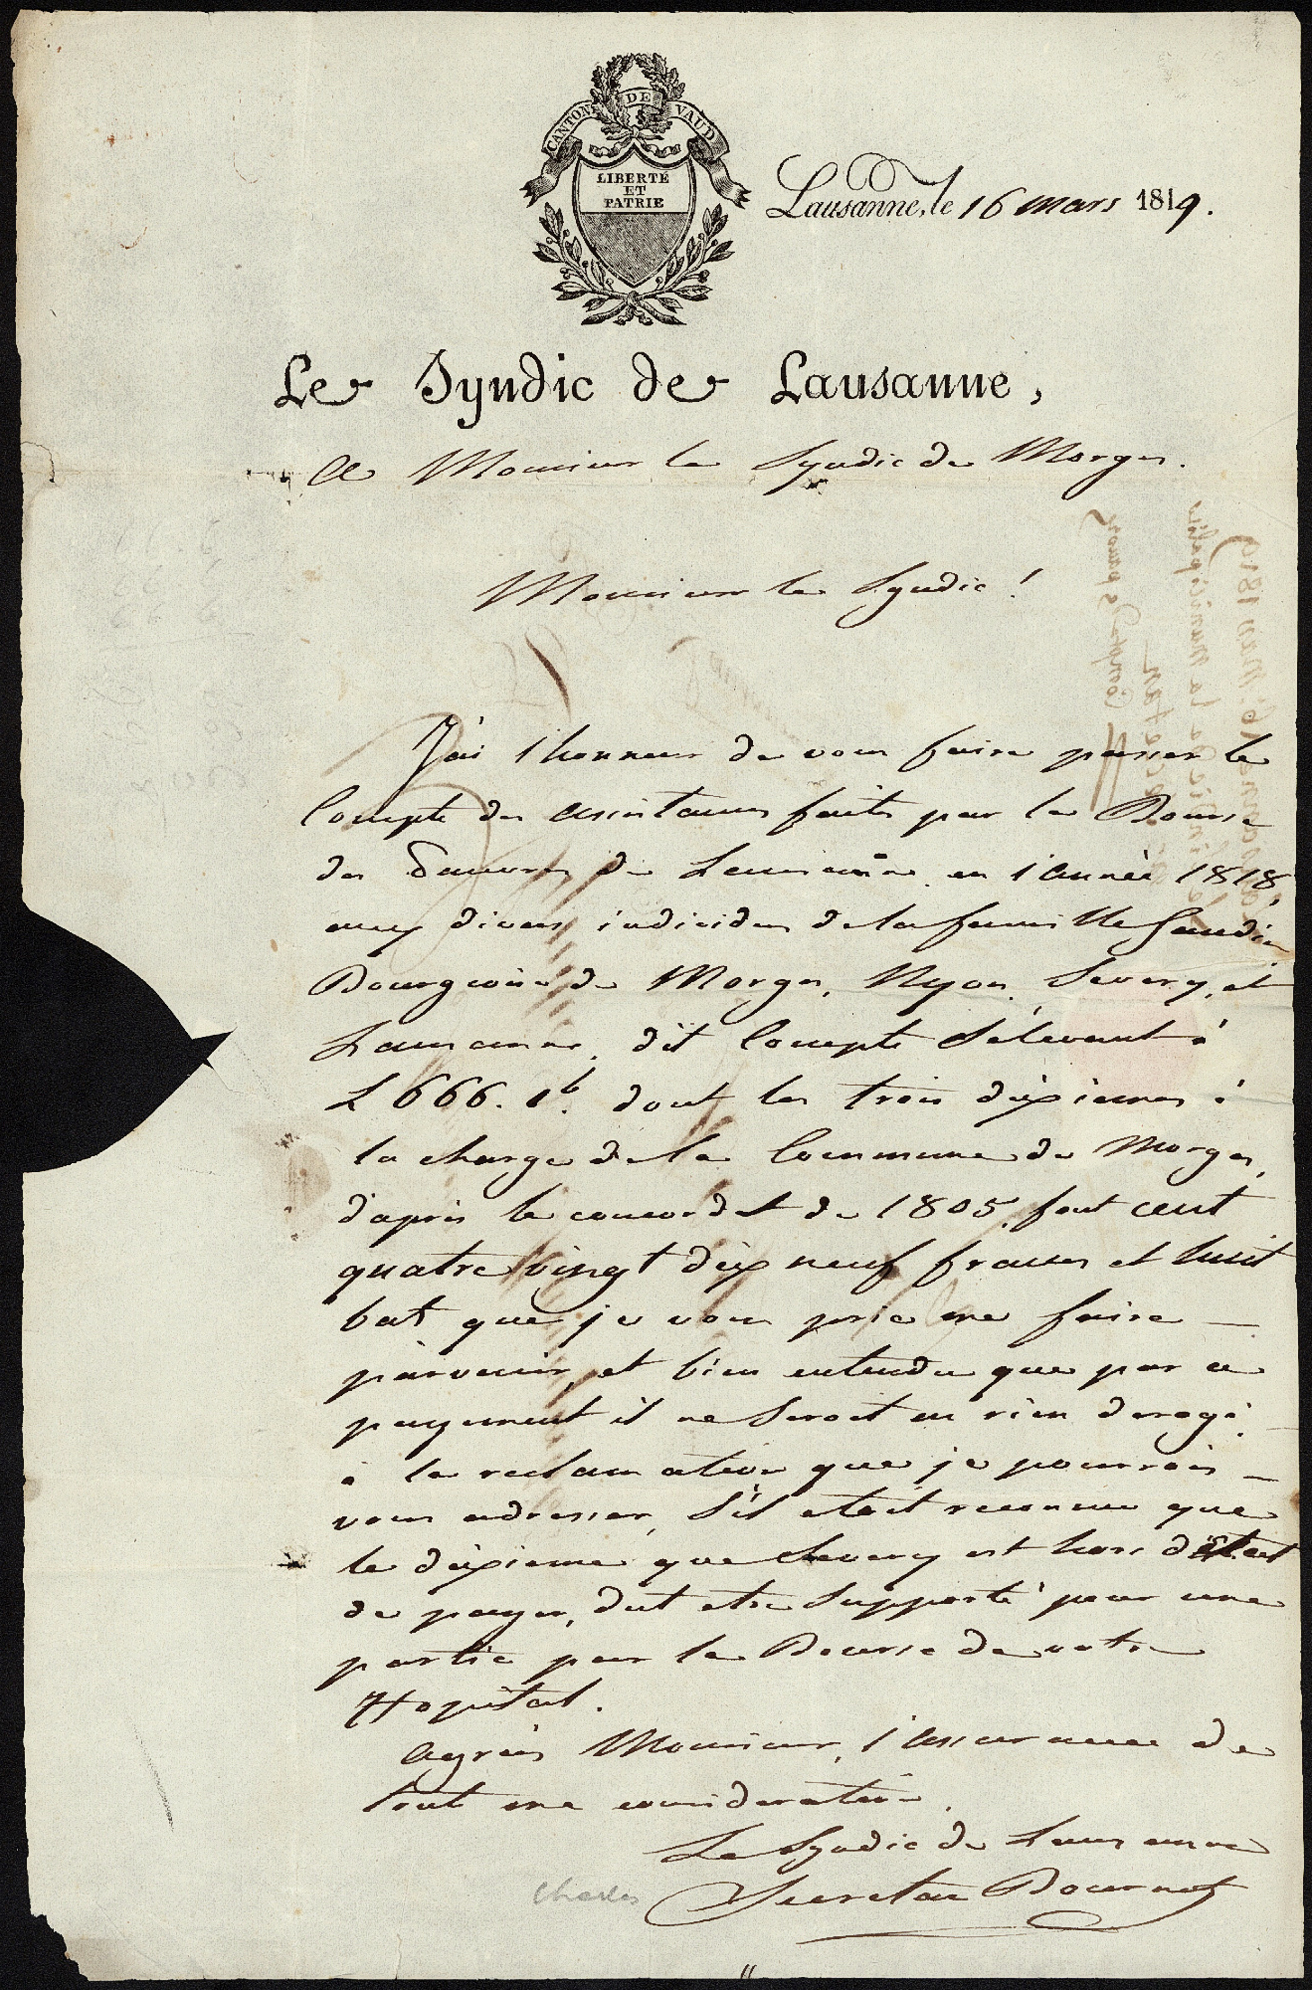 CANTON DE VAUD
LIBERTÉ
ET
PATRIE
Lausanne, le 16 mars 1819.
Le Syndic de Lausanne,
A Monsieur le Syndic de Morges.
Monsieur le Syndic!
J'ai l'honneur de vous faire passer le
Compte des assistances faites par la Bourse
des Pauvres de Lausanne en l'année 1818
aux divers individus de la famille Gaudin
Bourgeoise de Morges, Nyon, Severy, et
Lausanne, dit Compte s'élevant à
L 666. 1 b. dont les trois dixiemes à
la charge de la Commune de Morges,
d'après le concordat de 1805, font cent
quatre vingt dix neuf francs et huit
bat que je vous prie me faire
parvenir, et bien entendu que par ce
payement il ne seroit en rien derogé
à la reclamation que je pourrois
vous adresser, s'il etait reconnu que
le dixieme que Severy est hors d'état
de payer, dut etre supporté pour une
partie par la Bourse de votre
Hopital.
Agréés Monsieur, l'assurance de
tout ma consideration.
Le Syndic de Lausanne
Charles Secretan Bournot